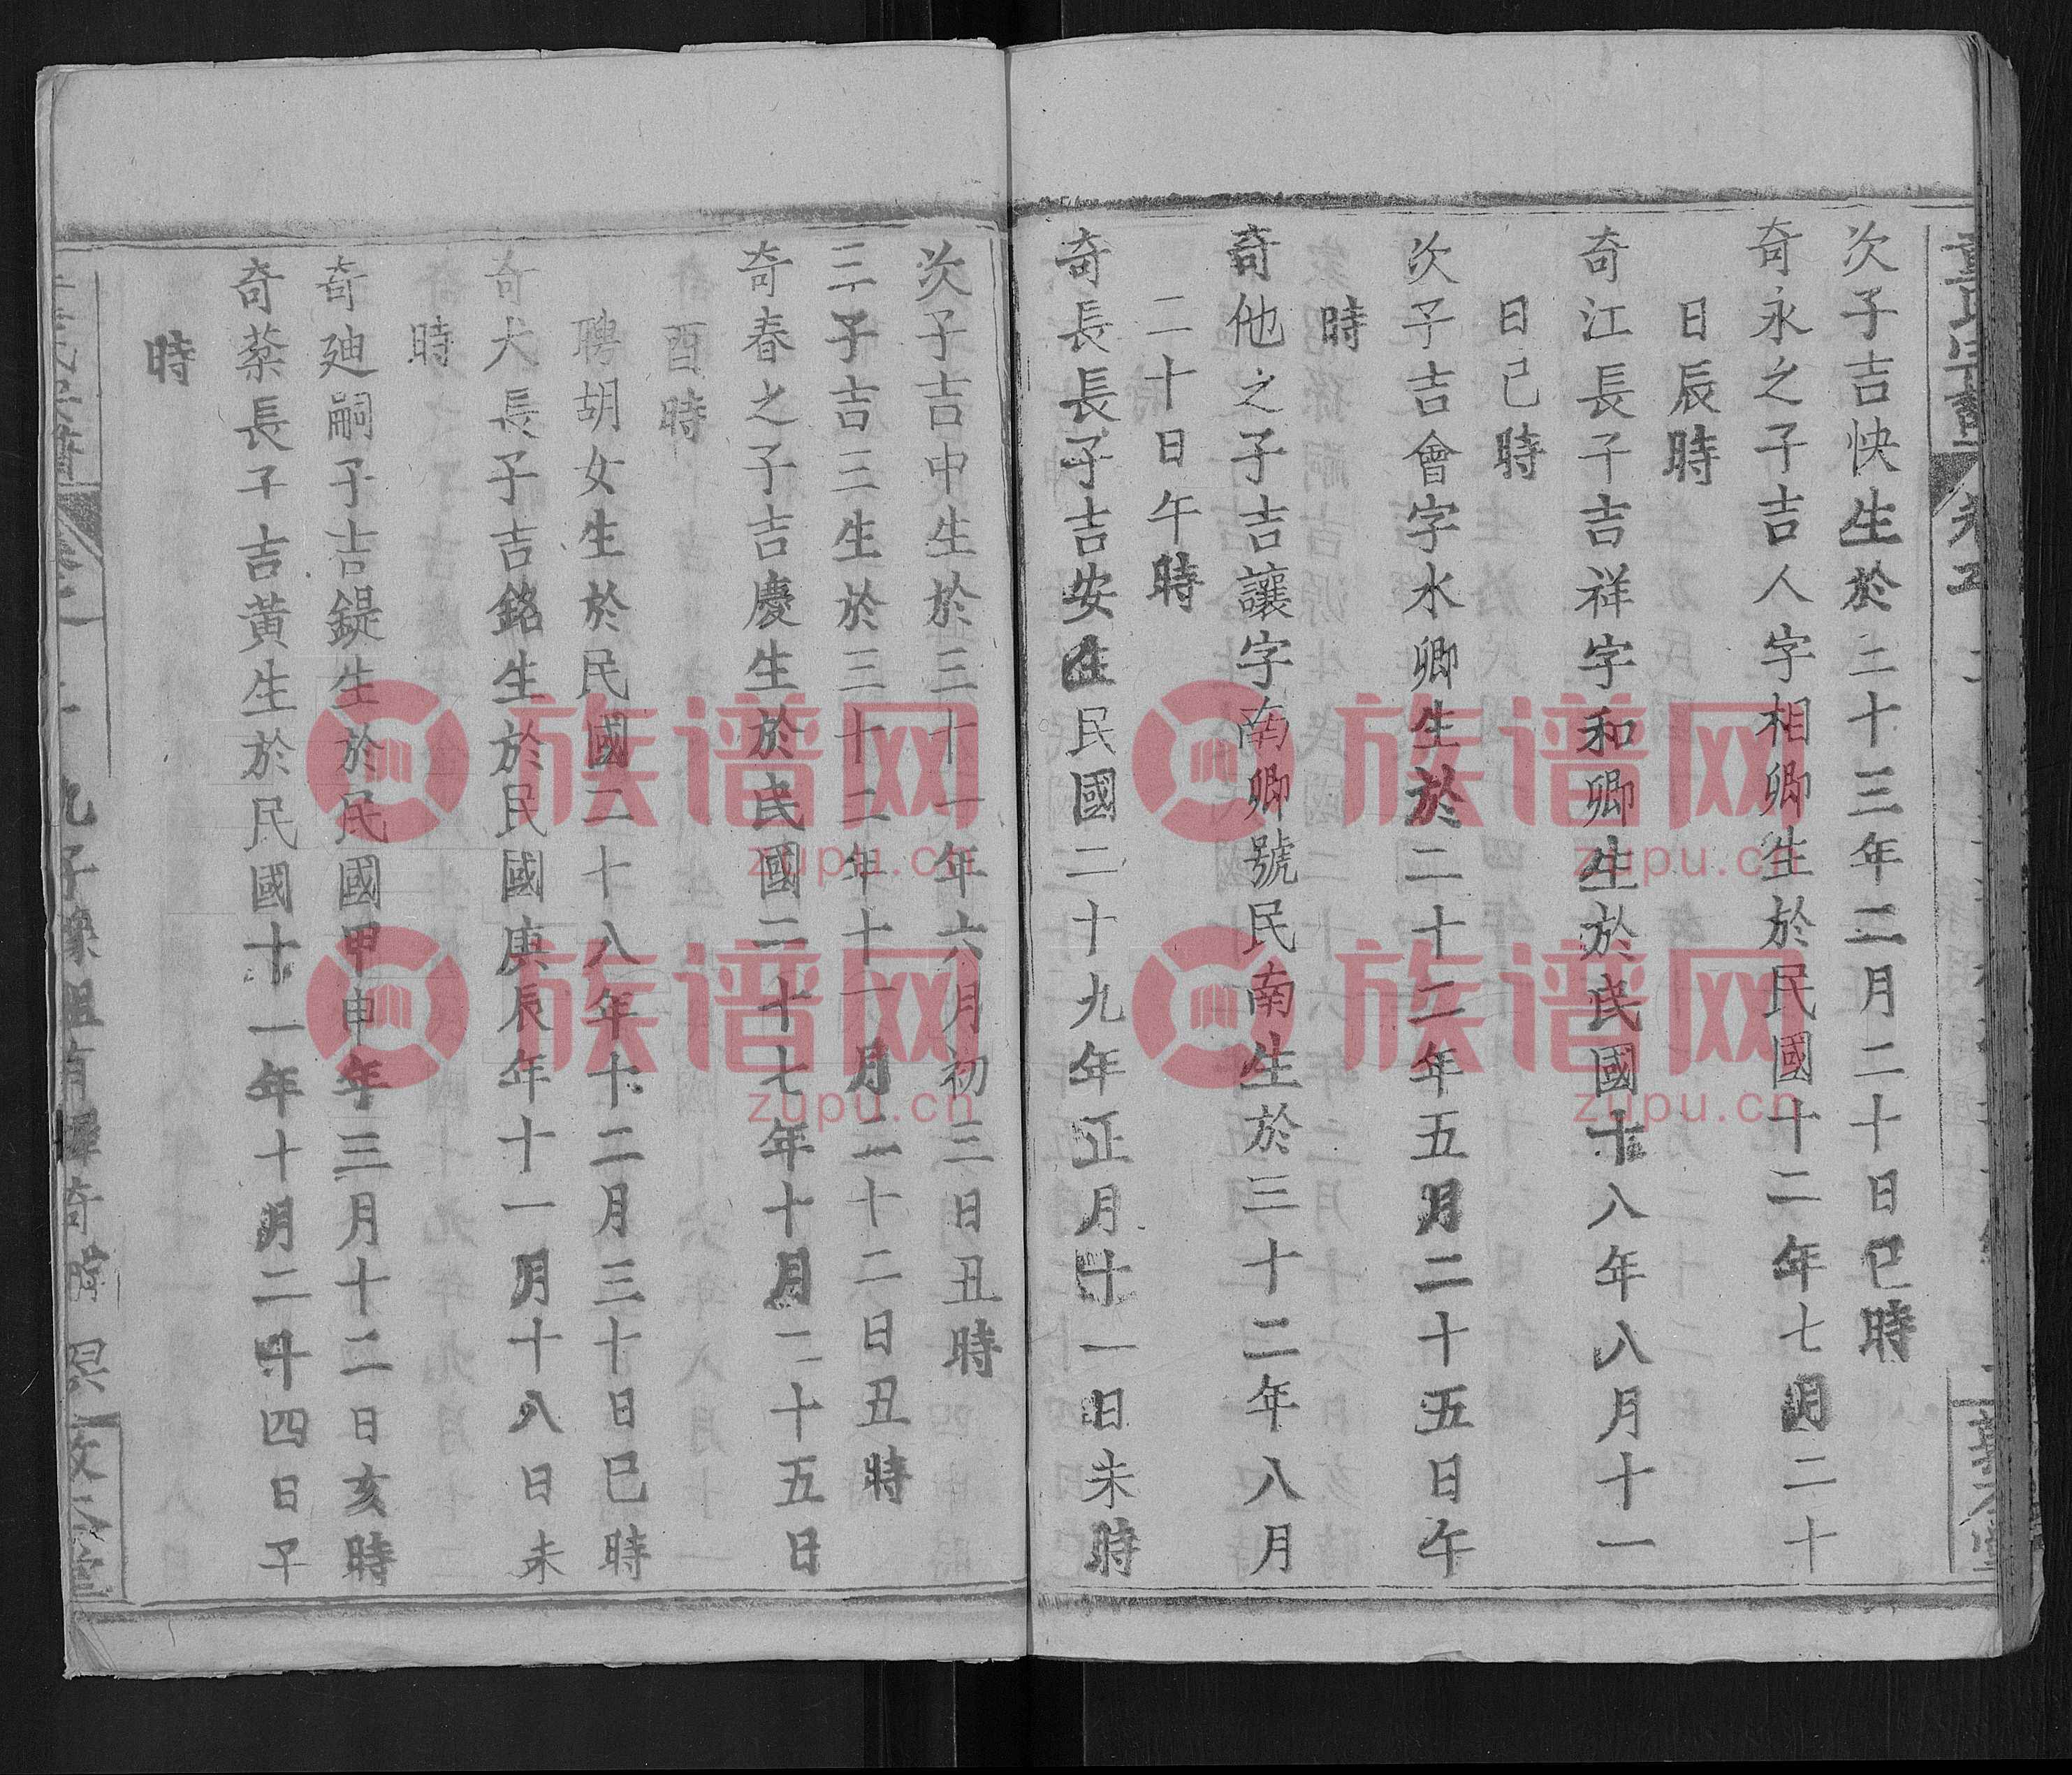 次子吉快生於二十三年二月二十日巳時
奇永之子吉人字相卿生於民國十二年七月二十
日辰時
奇江長子吉祥字和卿生於民國十八年八月十一
日巳時
次子吉會字水卿生於二十二年五月二十五日午
時
奇他之子吉讓字南卿號民南生於三十二年八月
二十日午時
奇長長子吉安生民國二十九年正月十一日未時
次子吉中生於三十一年六月初三日丑時
三子吉三生於三十二年十一月二十二日丑時
奇春之子吉慶生於民國二十七年十月二十五日
酉時
聘胡女生於民國二十八年十二月三十日巳時
奇大長子吉銘生於民國庚辰年十一月十八日未
時
奇廸嗣子吉鍉生於民國甲申年三月十二日亥時
奇蘂長子吉黃生於民國十一年十月二十四日子
時
族谱网
zupu.cn
族谱网
zupu.cn
族谱网
zupu.cn
族谱网
zupu.cn